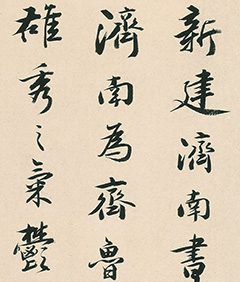 新建濟南書
濟南為齊魯
雄秀之氣鬱